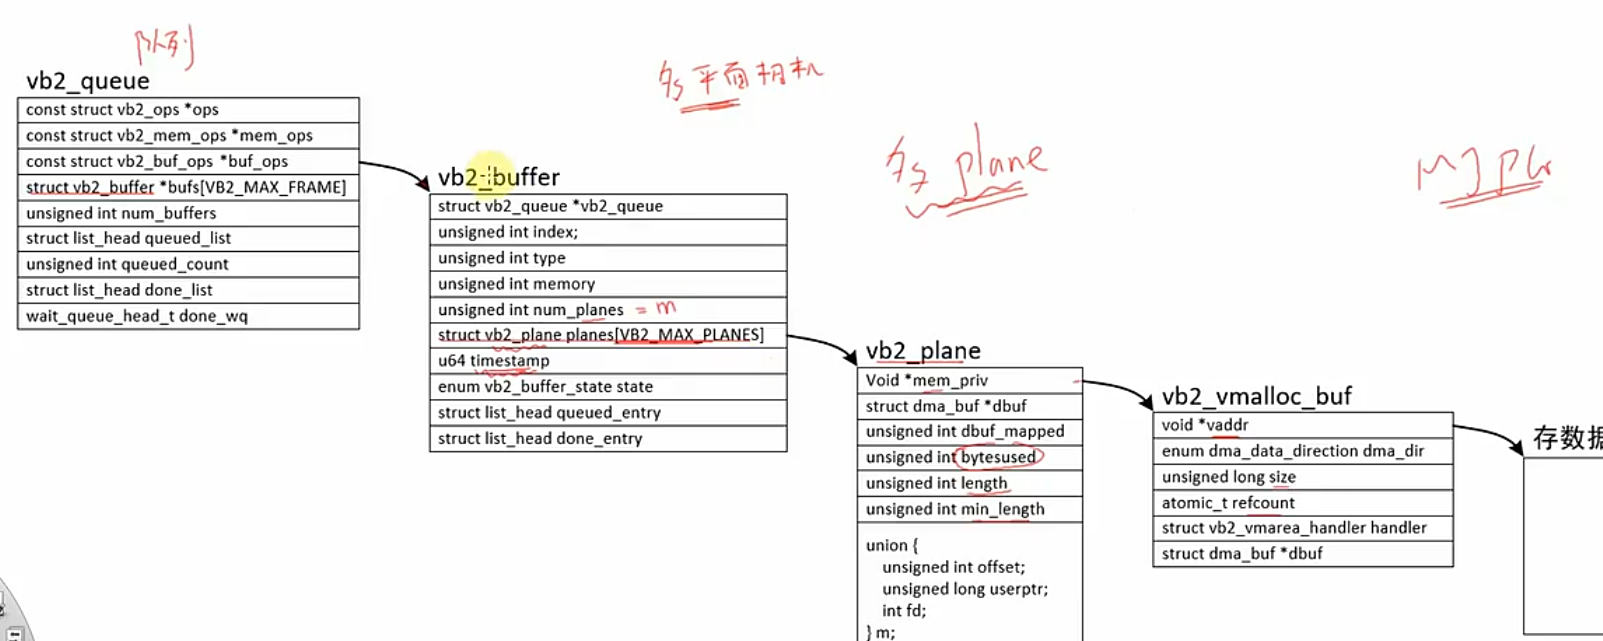 队列
vb2_queue
const struct vb2_ops *ops
const struct vb2_mem_ops *mem_ops
const struct vb2_buf_ops *buf_ops
struct vb2_buffer *bufs[VB2_MAX_FRAME]
unsigned int num_buffers
struct list_head queued_list
unsigned int queued_count
struct list_head done_list
wait_queue_head_t done_wq
多平面相机
多 plane
vb2_buffer
struct vb2_queue *vb2_queue
unsigned int index;
unsigned int type
unsigned int memory
unsigned int num_planes = m
struct vb2_plane planes[VB2_MAX_PLANES]
u64 timestamp
enum vb2_buffer_state state
struct list_head queued_entry
struct list_head done_entry
vb2_plane
Void *mem_priv
struct dma_buf *dbuf
unsigned int dbuf_mapped
unsigned int bytesused
unsigned int length
unsigned int min_length
union {
unsigned int offset;
unsigned long userptr;
int fd;
} m;
vb2_vmalloc_buf
void *vaddr
enum dma_data_direction dma_dir
unsigned long size
atomic_t refcount
struct vb2_vmarea_handler handler
struct dma_buf *dbuf
存数据